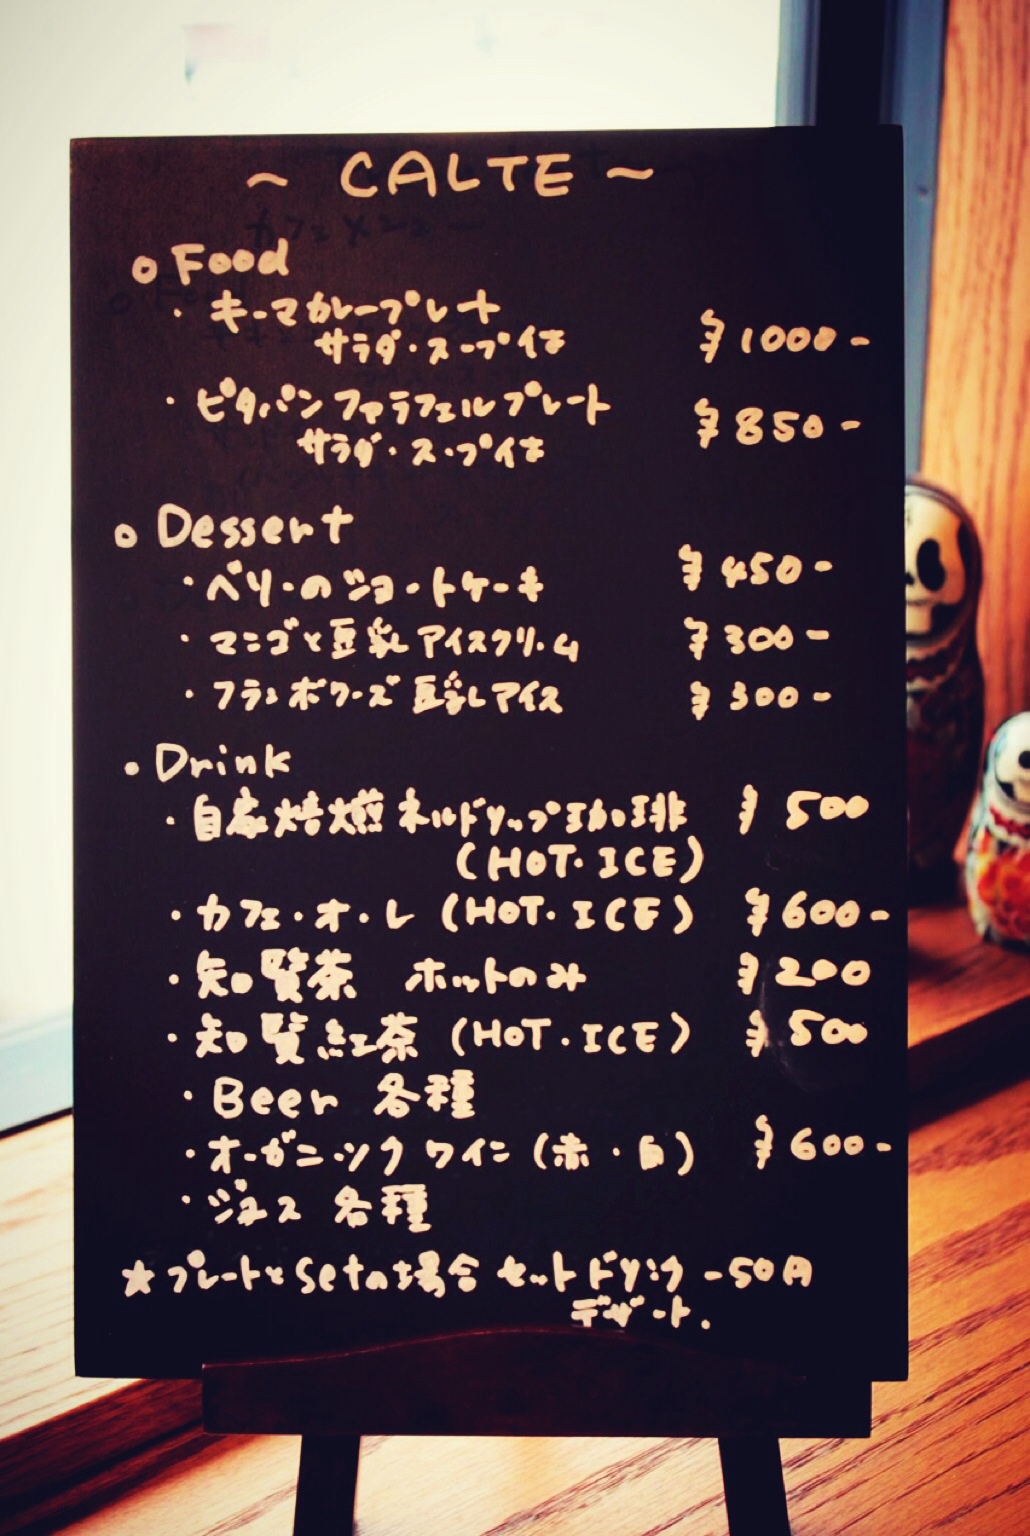 ~ CALTE ~
○ Food
・キーマカレープレート
サラダ・スープ付き ¥1000-
・ピタパンファラフェルプレート ¥850-
サラダ・スープ付き
○ Dessert
・ベリーのショートケーキ ¥450-
・マンゴと豆乳アイスクリーム ¥300-
・フランボワーズ豆乳アイス ¥300-
・Drink
・自家焙煎ネルドリップ珈琲 ¥500
(HOT・ICE)
・カフェ・オ・レ (HOT・ICE) ¥600-
・知覧茶 ホットのみ ¥200
・知覧紅茶 (HOT・ICE) ¥500
・Beer 各種
・オーガニックワイン (赤・白) ¥600-
・ジュース 各種
★プレートとsetの場合 セットドリンク -50円
デザート.